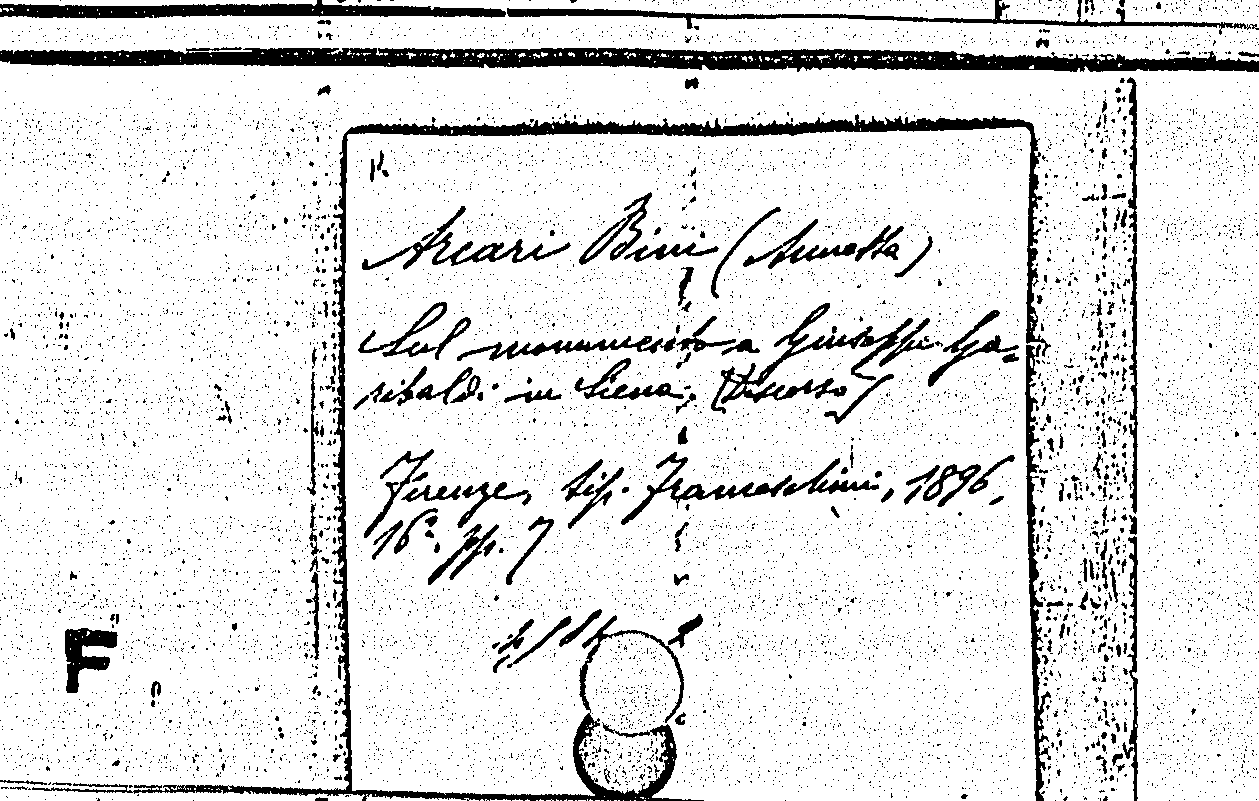 Arcari Bini (Annetta)
Sul monumento a Giuseppe Ga-
ribaldi in Siena. [Discorso]
Firenze, tip. Franceschini, 1896,
16°. pp. 7
F